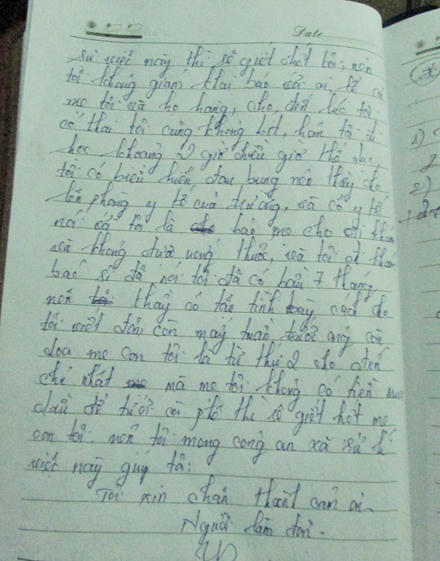 Date
sự việc này thì sẽ giết chết tôi, nên
tôi không giám khai báo với ai, kể cả
mẹ tôi và họ hàng, cho đến lúc tôi
có thai tôi cũng không bít, hôm tôi đi
học khoảng 2 giờ chiều giờ thể dục,
tôi có biểu hiện đau bụng nên thầy cho
lên phòng y tế của trường, và cô y tế
nói với tôi là bảo mẹ cho đi khám
và không được uống thuốc, và tôi đi khám
bác sĩ đã nói tôi đã có bầu 7 tháng
nên thầy cô tận tình cách cho
tôi viết đơn còn mấy tuần trước ông còn
dọa mẹ con tôi là từ thứ 2 cho đến
chủ nhật mà mẹ tôi không có tiền mua
dầu để tưới cà phê thì sẽ giết hết mẹ
con tôi. nên tôi mong công an xã sử lí
việc này giúp tôi:
Tôi xin chân thành cảm ơn.
Người làm đơn.